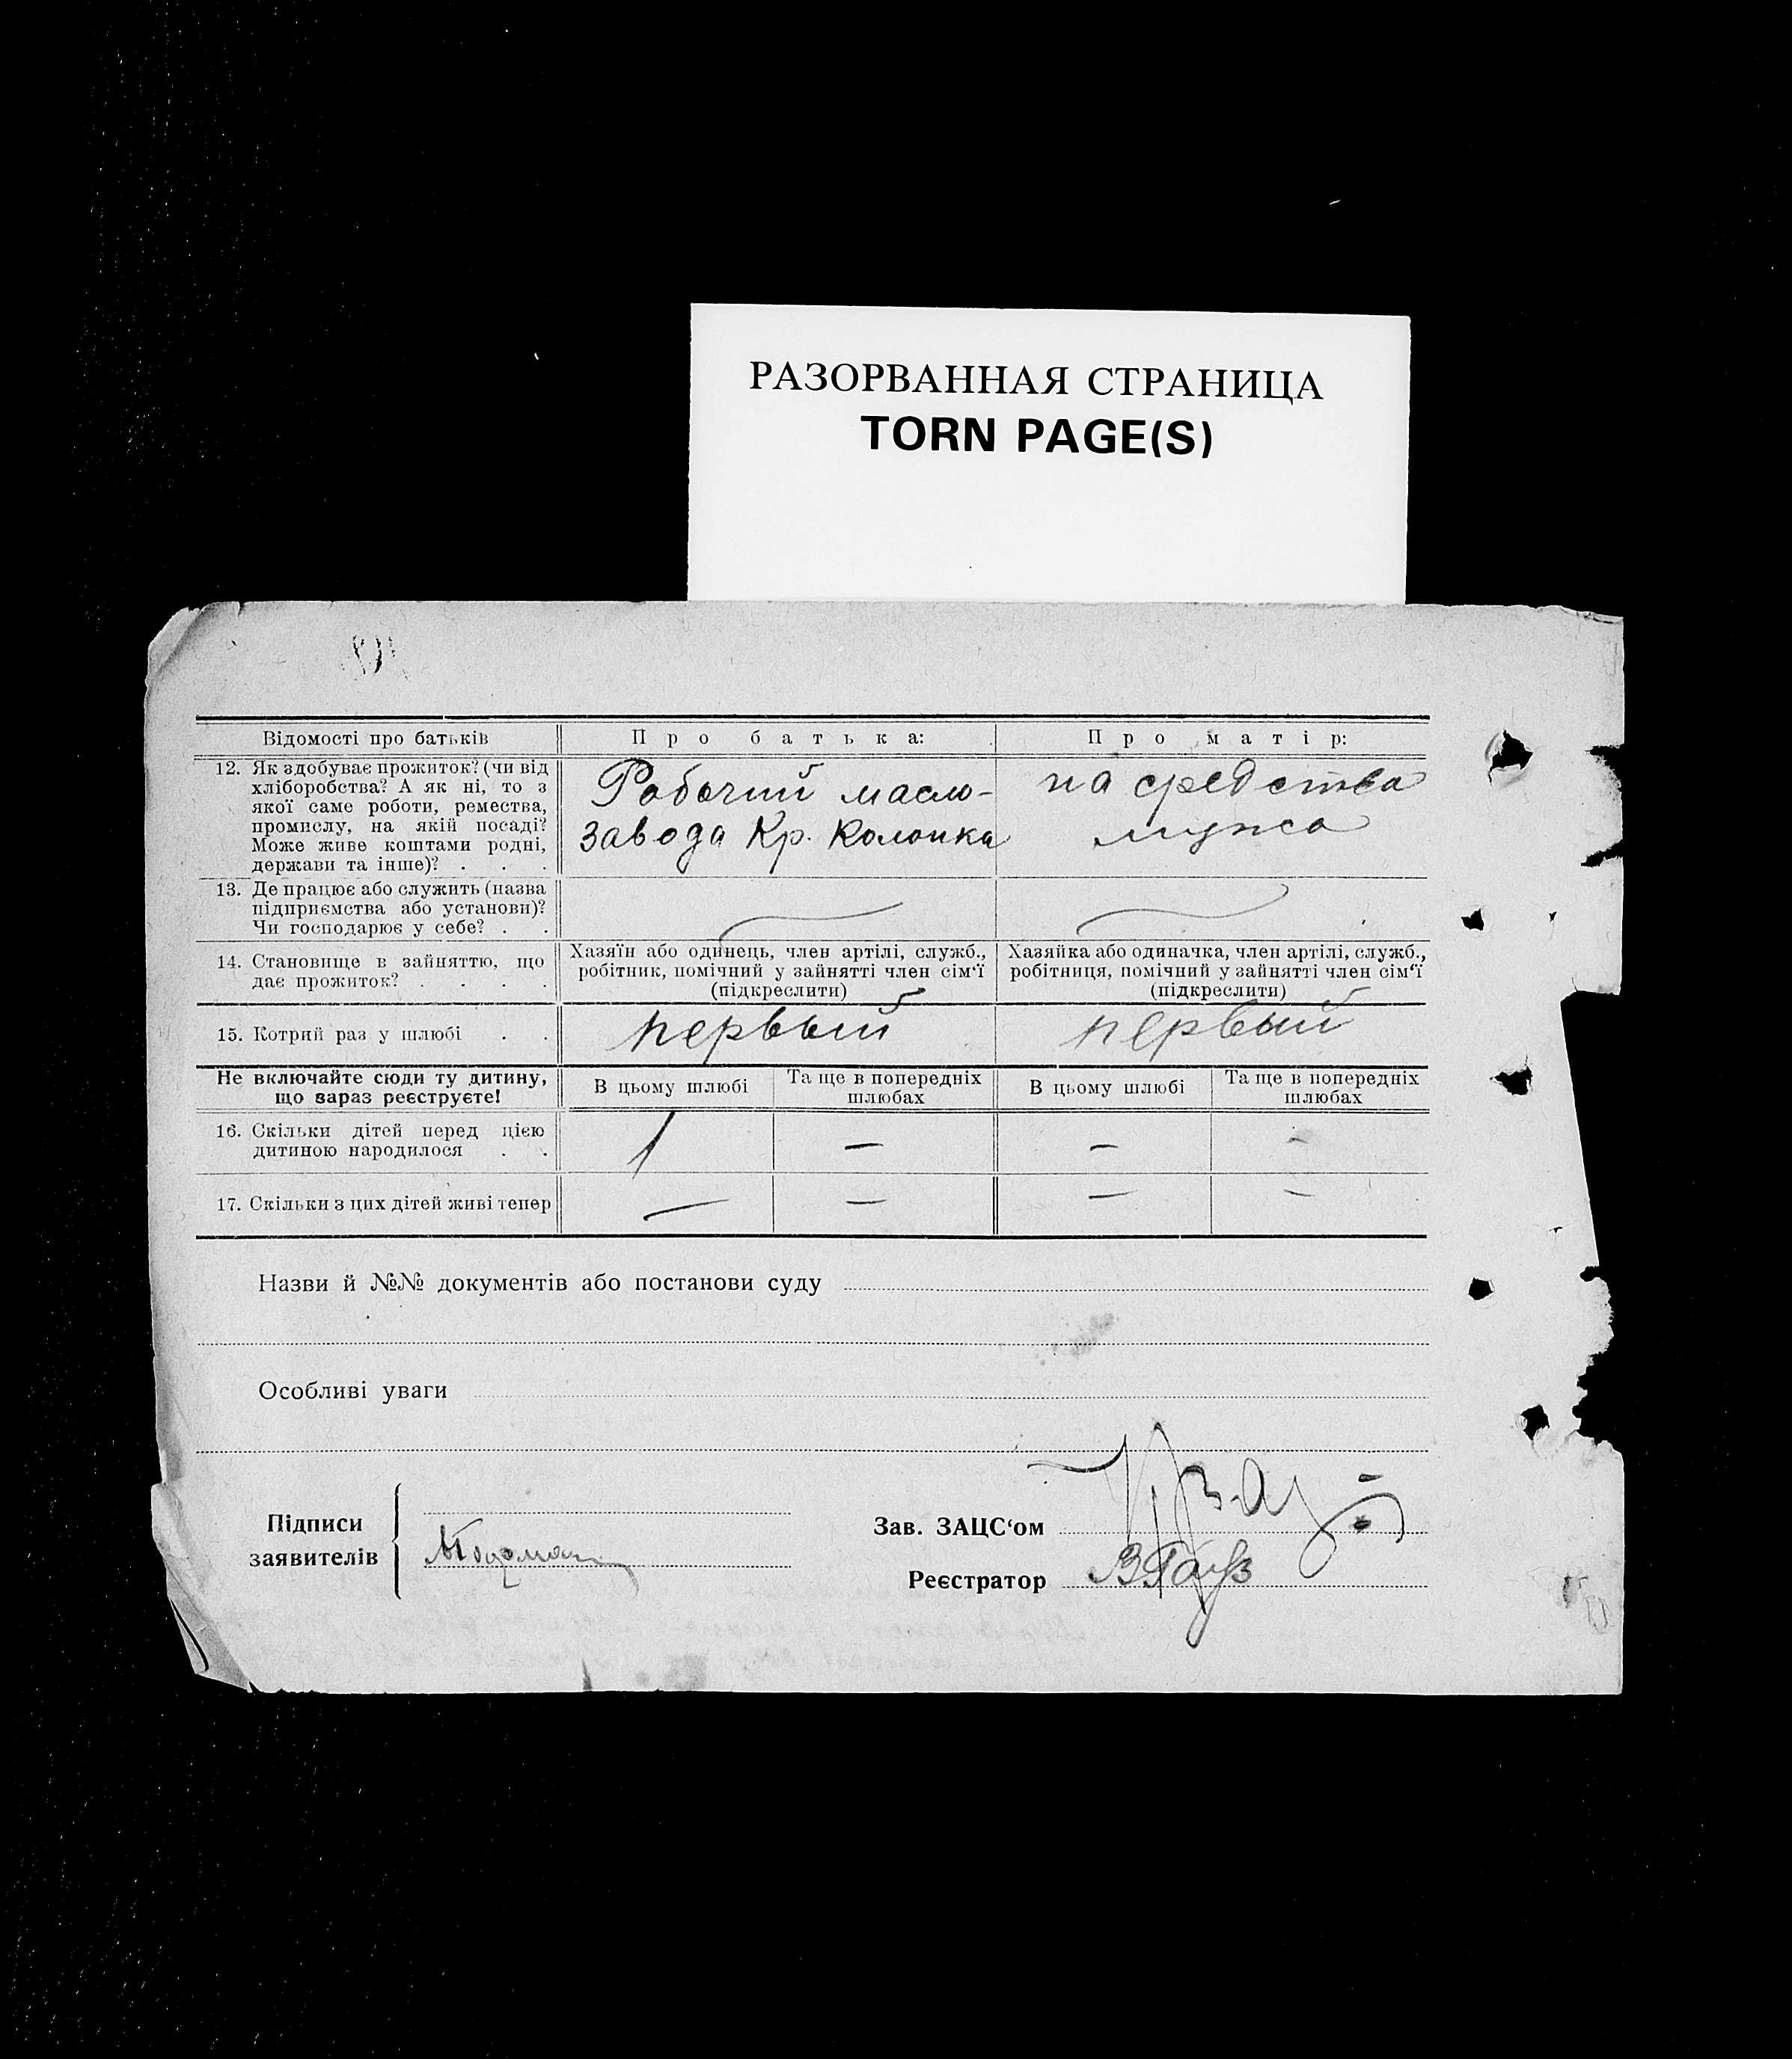 РАЗОРВАННАЯ СТРАНИЦА
TORN PAGE(S)
Відомості про батьків
Про батька:
Про матір:
12. Як здобуває прожиток? (чи від
хліборобства? А як ні, то з
якої саме роботи, ремества,
промислу, на якій посаді?
Може живе коштами родні,
держави та інше)? . . .
Рабочий масло-
завода Кр. Колонка
на средства
мужа
13. Де працює або служить (назва
підприємства або установи)?
Чи господарює у себе? . .
14. Становище в зайняттю, що
дає прожиток? . . . .
Хазяїн або одинець, член артілі, служб.,
робітник, помічний у зайнятті член сім'ї
(підкреслити)
Хазяйка або одиначка, член артілі, служб.,
робітниця, помічний у зайнятті член сім'ї
(підкреслити)
15. Котрий раз у шлюбі . .
первый
первый
Не включайте сюди ту дитину,
що зараз реєструєте!
В цьому шлюбі
Та ще в попередніх
шлюбах
В цьому шлюбі
Та ще в попередніх
шлюбах
16. Скільки дітей перед цією
дитиною народилося . .
1 — — -
17. Скільки з цих дітей живі тепер
— — — -
Назви й №№ документів або постанови суду
Особливі уваги
Підписи
заявителів
Зав. ЗАЦС'ом
Реєстратор